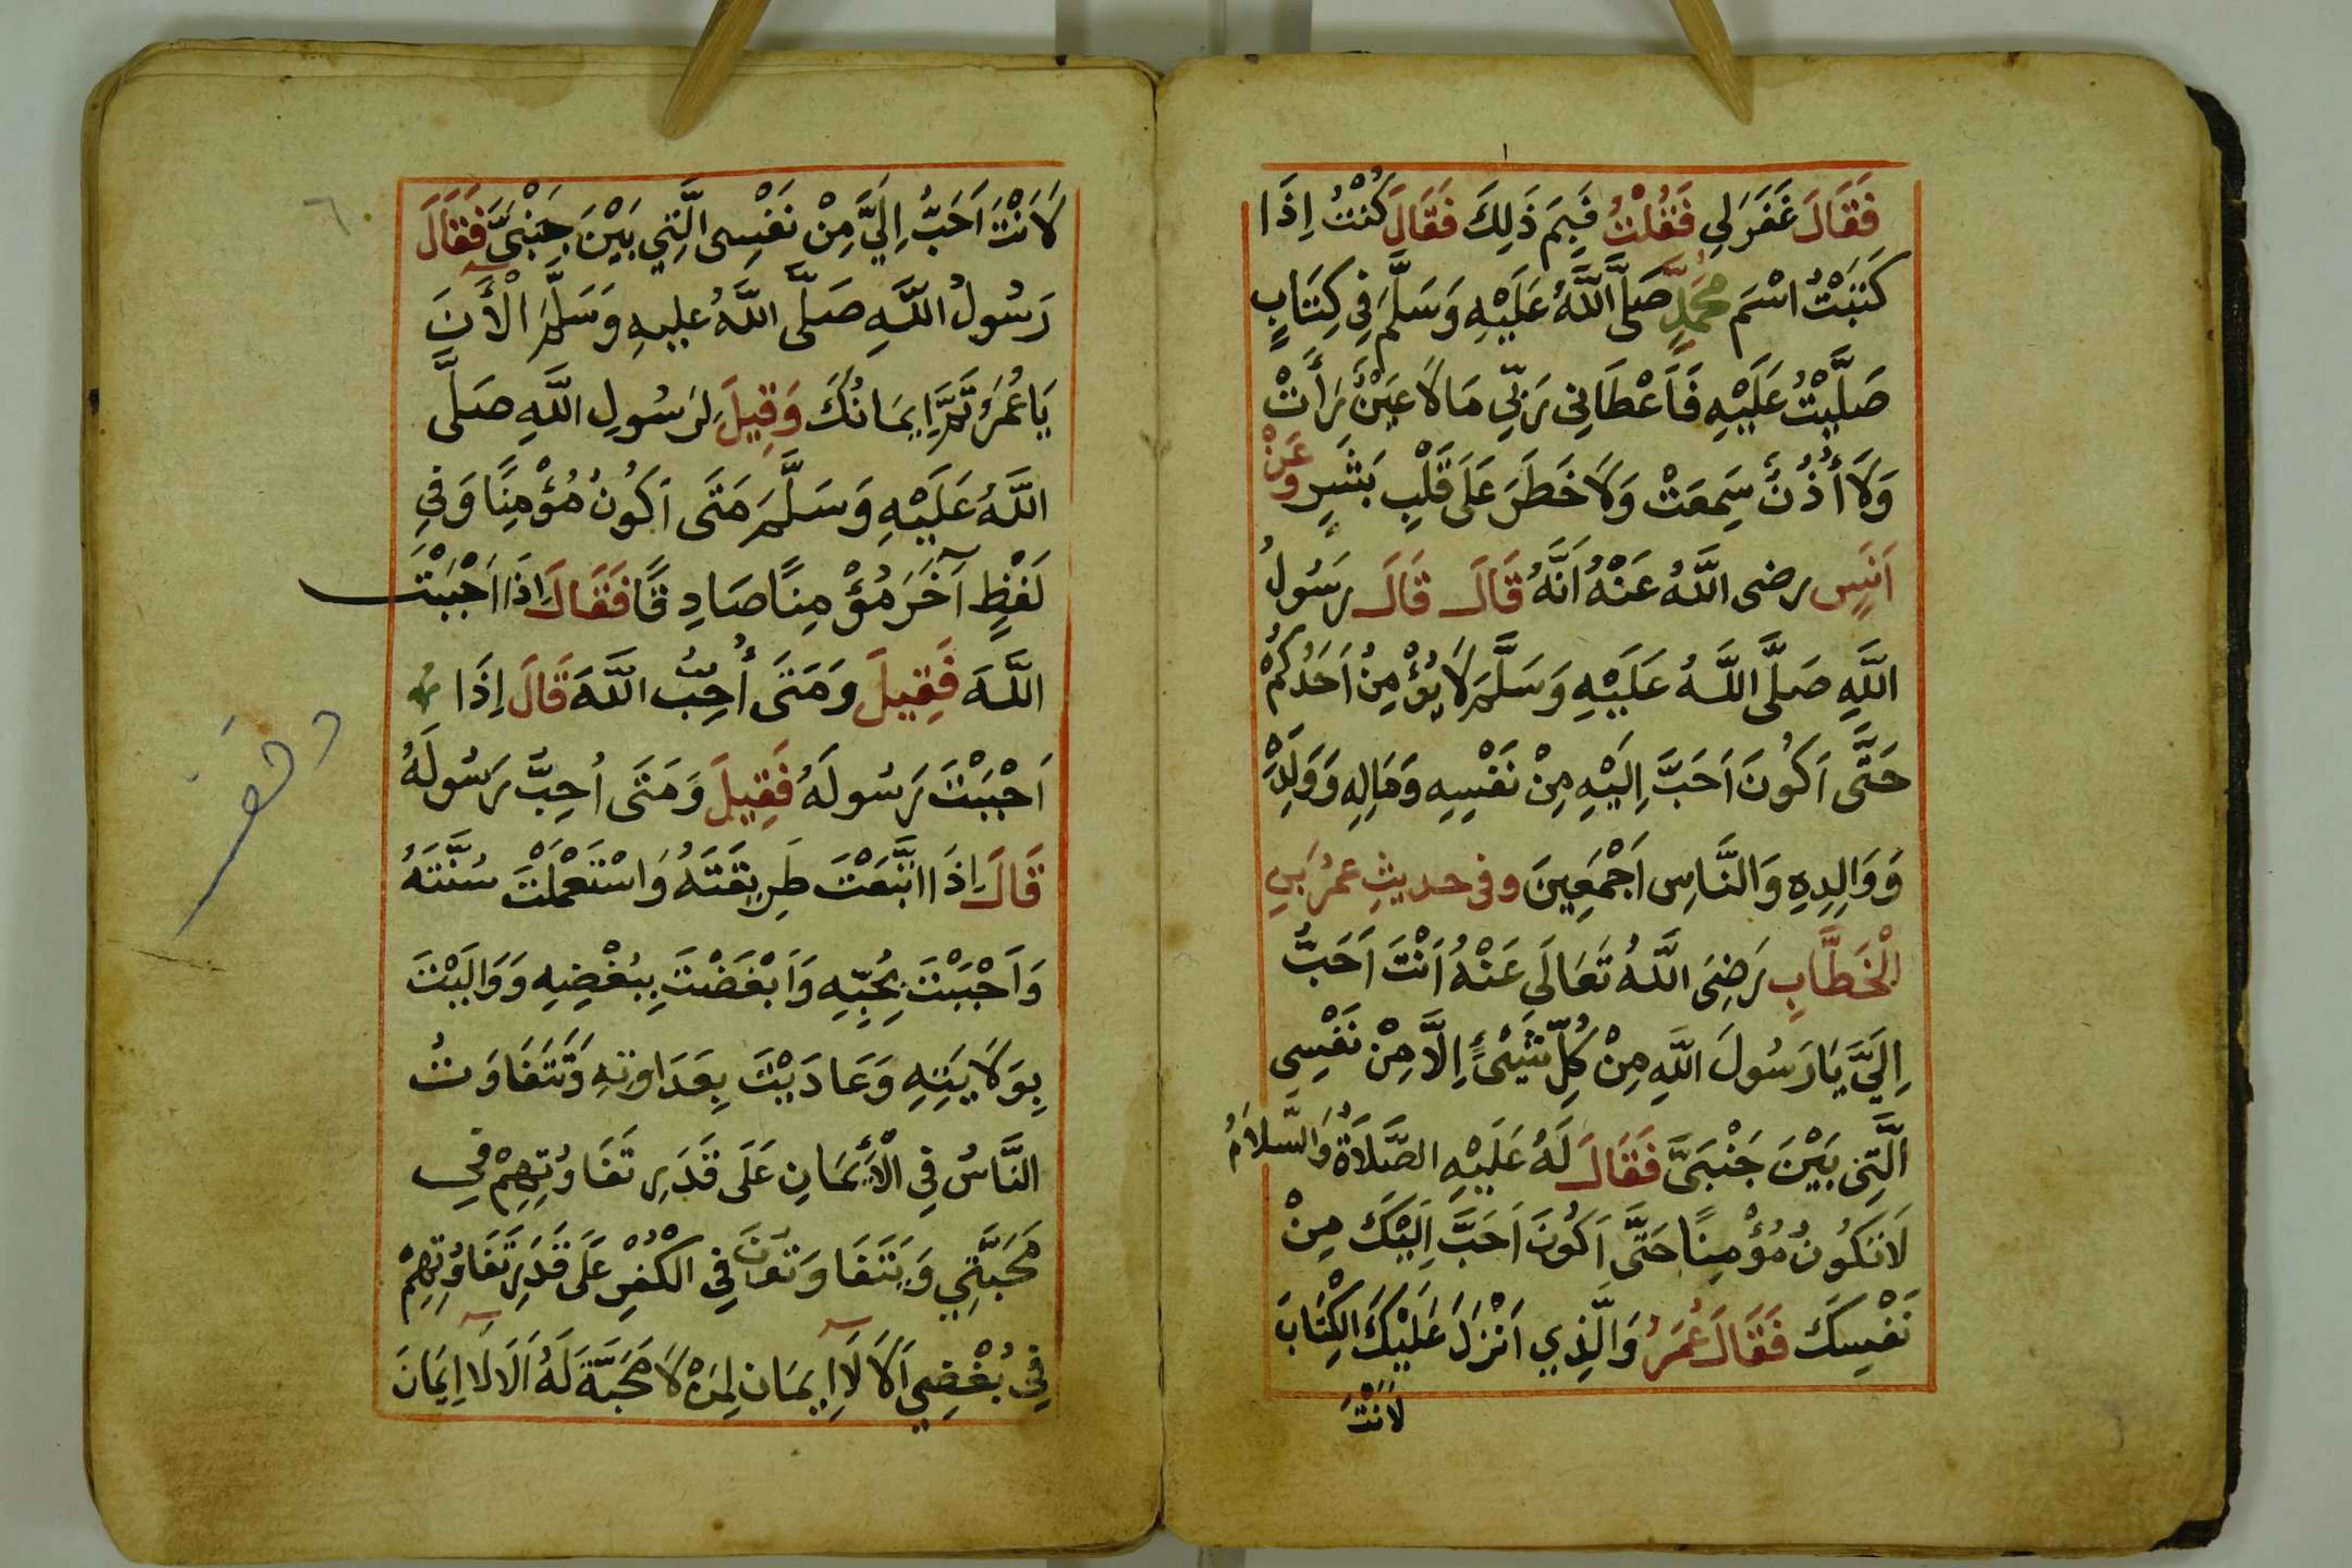 فَقَالَ غَفَرَ لِي فَقُلْتُ فَبِمَ ذَلِكَ فَقَالَ كُنْتُ اِذَا
كَتَبْتُ اسْمَ مُحَمَّدٍ صَلَّى اللَّهُ عَلَيْهِ وَسَلَّمَ فِي كِتَابٍ
صَلَّيْتُ عَلَيْهِ فَاَعْطَانِي رَبِّي مَا لَا عَيْنٌ رَأَتْ
وَلَا أُذُنٌ سَمِعَتْ وَلَا خَطَرَ عَلَى قَلْبِ بَشَرٍ وَعَنْ
اَنَسٍ رضى اللَّهُ عَنْهُ اَنَّهُ قَالَ قَالَ رَسُولُ
اللَّهِ صَلَّى اللَّهُ عَلَيْهِ وَسَلَّمَ لَا يُؤْمِنُ اَحَدُكُمْ
حَتَّى اَكُونَ اَحَبَّ اِلَيْهِ مِنْ نَفْسِهِ وَمَالِهِ وَوَلَدِهِ
وَوَالِدِهِ وَالنَّاسِ اَجْمَعِينَ وفى حديثِ عمرُ بَنِ
الْخَطَّابِ رَضِىَ اللَّهُ تَعَالَى عَنْهُ اَنْتَ اَحَبُّ
اِلَيَّ يَا رَسُولَ اللَّهِ مِنْ كُلِّ شَيْءٍ اِلَّا مِنْ نَفْسِي
الَّتِى بَيْنَ جَنْبَىَّ فَقَالَ لَهُ عَلَيْهِ الصَّلَاةُ وَالسَّلَامُ
لَا تَكُونُ مُؤْمِنًا حَتَّى اَكُونَ اَحَبَّ اِلَيْكَ مِنْ
نَفْسِكَ فَقَالَ عُمَرُ وَالَّذِي اَنْزَلَ عَلَيْكَ الْكِتَابَ
لَاَنْتَ
٦
لَاَنْتَ اَحَبُّ اِلَيَّ مِنْ نَفْسِى الَّتِي بَيْنَ جَنْبَىَّ فَقَالَ
رَسُولُ اللَّهِ صَلَّى اللَّهُ عليهِ وَسَلَّمَ الْآنَ
يَا عُمَرُ تَمَّ اِيمَانُكَ وَقِيلَ لِرَسُولِ اللَّهِ صَلَّى
اللَّهُ عَلَيْهِ وَسَلَّمَ مَتَى اَكُونُ مُؤْمِنًا وَفِي
لَفْظٍ آخَرَ مُؤْمِنًا صَادِقًا فَقَالَ اِذَا اَحْبَبْتَ
اللَّهَ فَقِيلَ وَمَتَى أُحِبُّ اللَّهَ قَالَ اِذَا
اَحْبَبْتَ رَسُولَهُ فَقِيلَ وَمَتَى اُحِبُّ رَسُولَهُ
قَالَ اِذَا اتَّبَعْتَ طَرِيقَتَهُ وَاسْتَعْمَلْتَ سُنَّتَهُ
وَاَحْبَبْتَ بِحُبِّهِ وَاَبْغَضْتَ بِبُغْضِهِ وَوَالَيْتَ
بِوَلَايَتِهِ وَعَادَيْتَ بِعَدَاوَتِهِ وَتَتَفَاوَتُ
النَّاسُ فِي الْأِيمَانِ عَلَى قَدَرِ تَفَاوُتِهِمْ فِي
مَحَبَّتِي وَيَتَفَاوَتُونَ فِي الْكُفْرِ عَلَى قَدَرِ تَفَاوُتِهِمْ
فِي بُغْضِي اَلَا لَا اِيمَانَ لِمَنْ لَا مَحَبَّةَ لَهُ اَلَا لَا اِيمَانَ